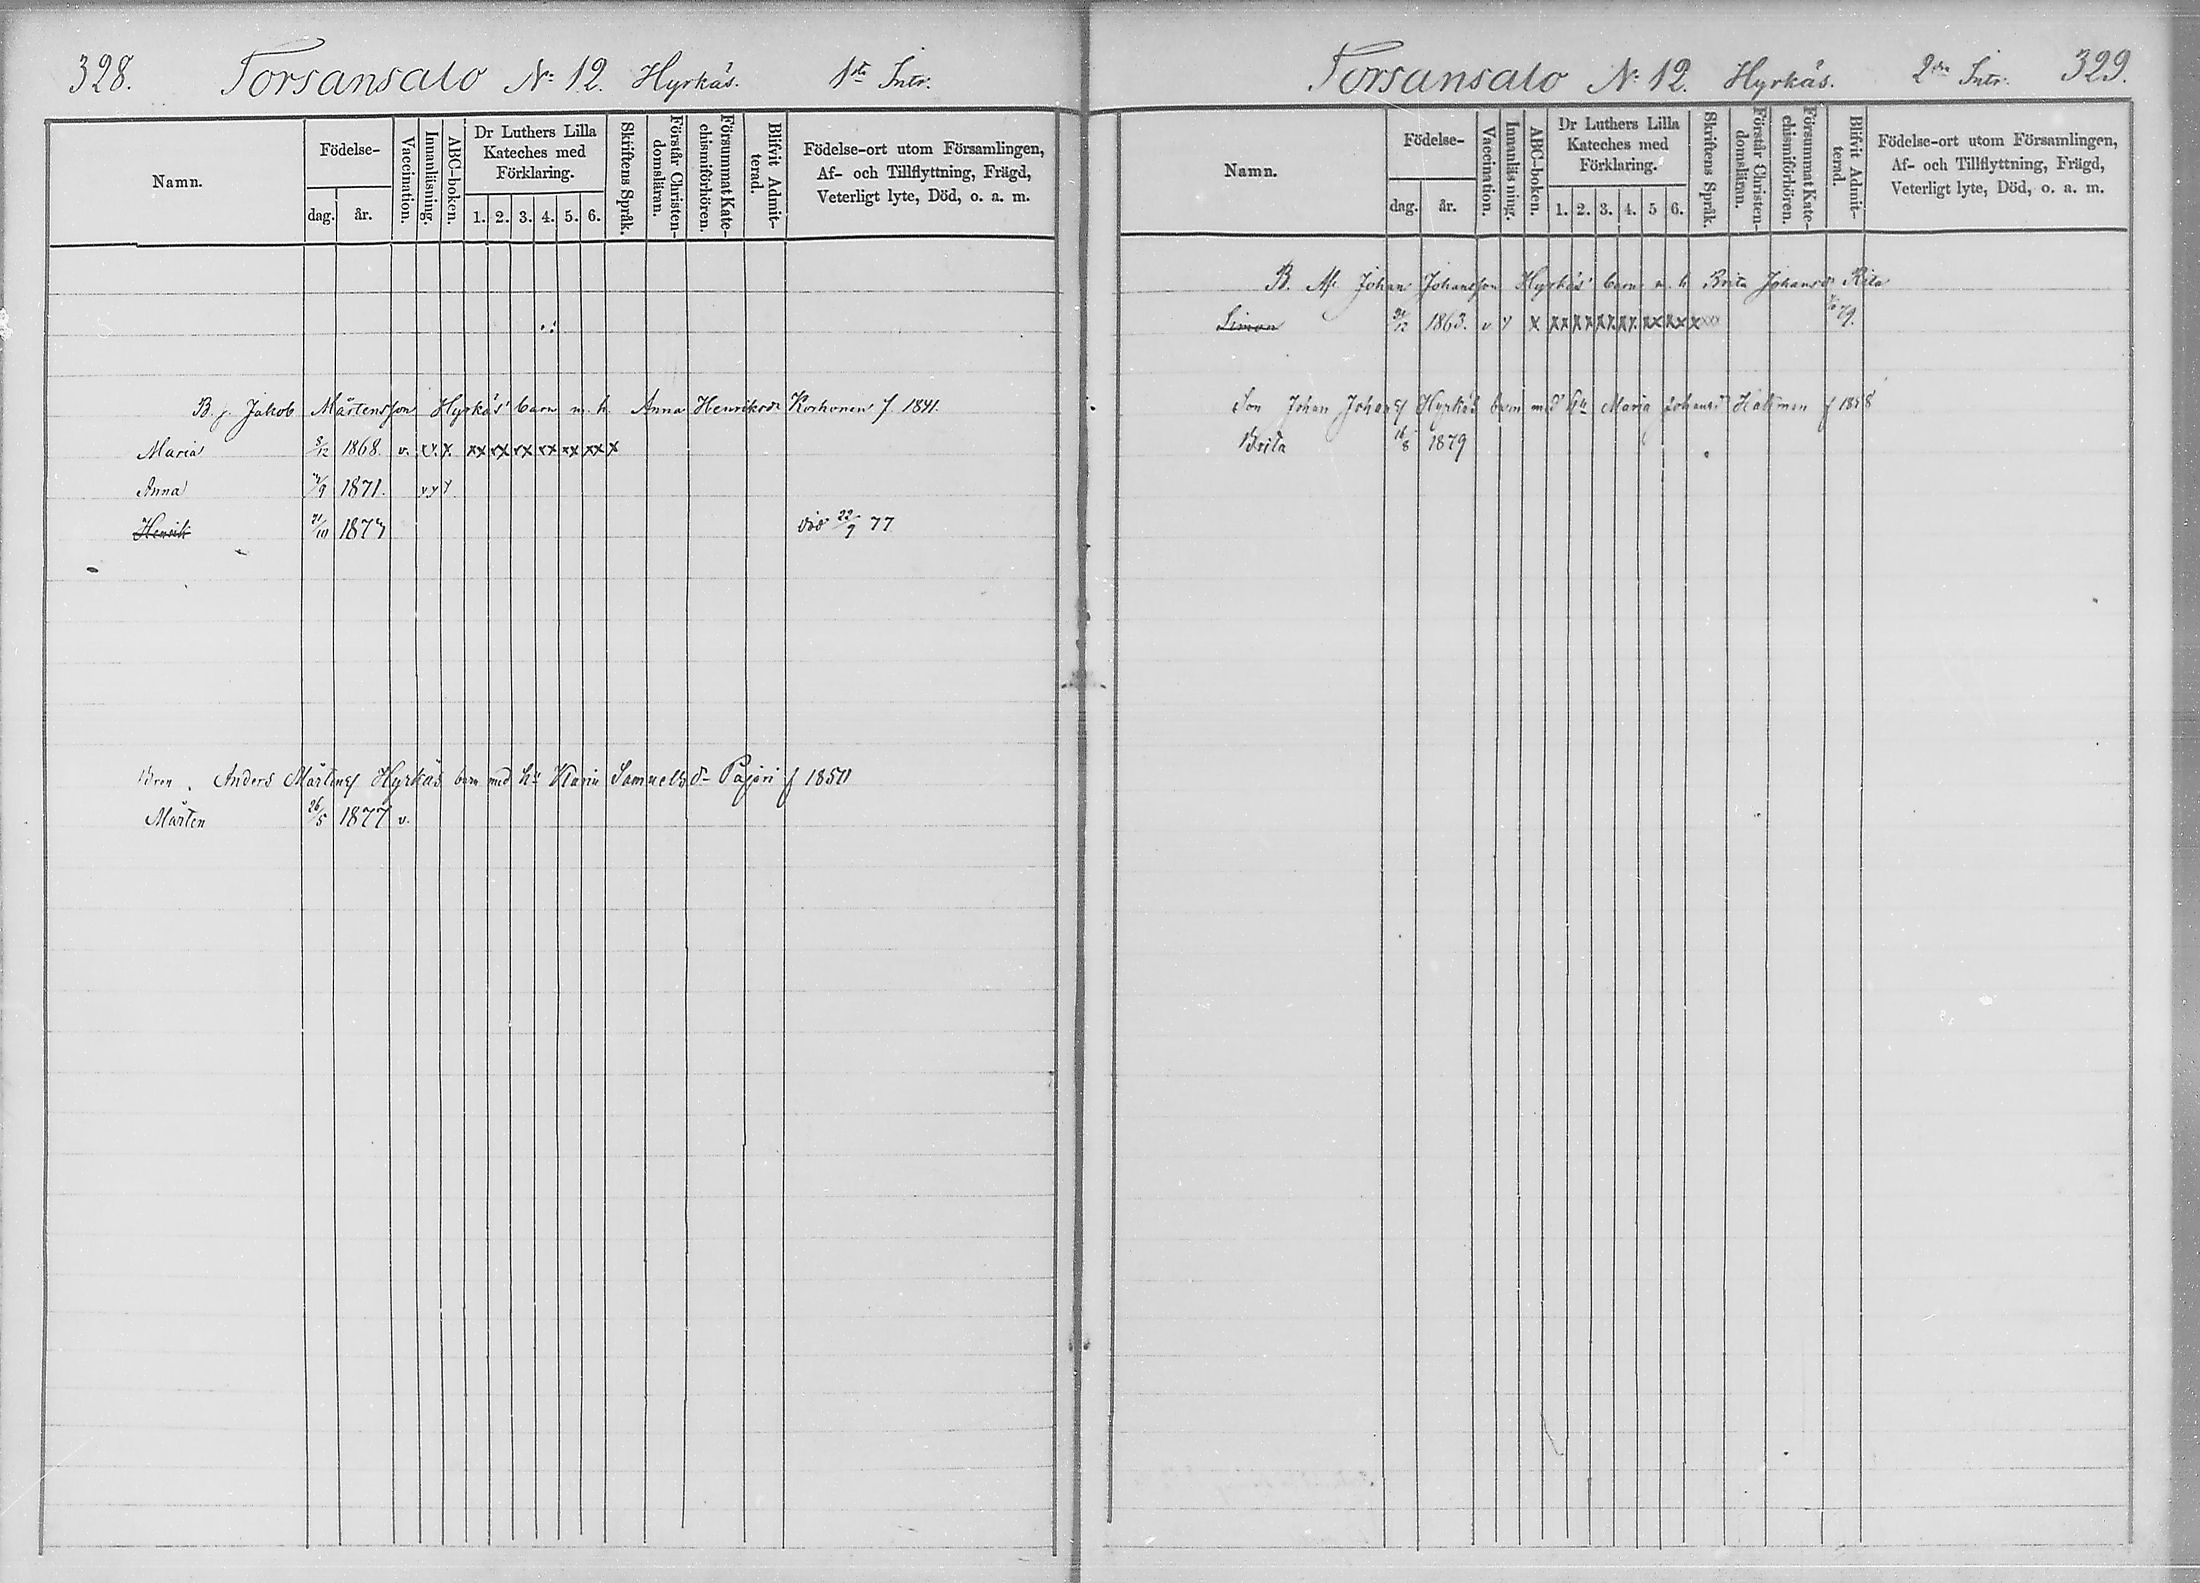 328. Torsansalo No 12. Hyrkäs. 1sta Intr.
Namn.
Födelse-
dag.
år.
Vaccination.
Innanläsning.
ABC-boken.
Dr Luthers Lilla
Kateches med
Förklaring.
1. 2. 3. 4. 5. 6.
Skriftens Språk.
Förstår Christen-
domsläran.
Försummat Kate-
chismiförhören.
Blifvit Admit-
terad.
Födelse-ort utom Församlingen,
Af- och Tillflyttning, Frägd,
Veterligt lyte, Död, o. a. m.
B. j. Jakob Mårtensson Hyrkäs' barn m. h. Anna Henriksdr Korhonen f 1841.
Maria 8/12 1868. v. v. x xx xx xx xx xx xx x
Anna /9 1871. v y y
Henrik 1877 död 22/9 77
Bron. Anders Mårtens Hyrkäs barn med hu Maria Samuelsd- Pajari f 1850
Mårten 26/5 1877 v.
Torsansalo No 12. Hyrkäs. 2dra Intr. 329.
Namn.
Födelse-
dag.
år.
Vaccination.
Innanläsning.
ABC-boken.
Dr Luthers Lilla
Kateches med
Förklaring.
1. 2. 3. 4. 5 6.
Skriftens Språk.
Förstår Christen-
domsläran.
Försummat Kate-
chismiförhören.
Blifvit Admit-
terad.
Födelse-ort utom Församlingen,
Af- och Tillflyttning, Frägd,
Veterligt lyte, Död, o. a. m.
B. Johan Johansson Hyrkäs' barn m. h. Brita Johansdr
Simon 1863. v y x xx xx xx xx xx xxx xxx 79.
Son Johan Johans Hyrkäs barn med hu Maria Johansd f 1858
Brita 16/8 1879